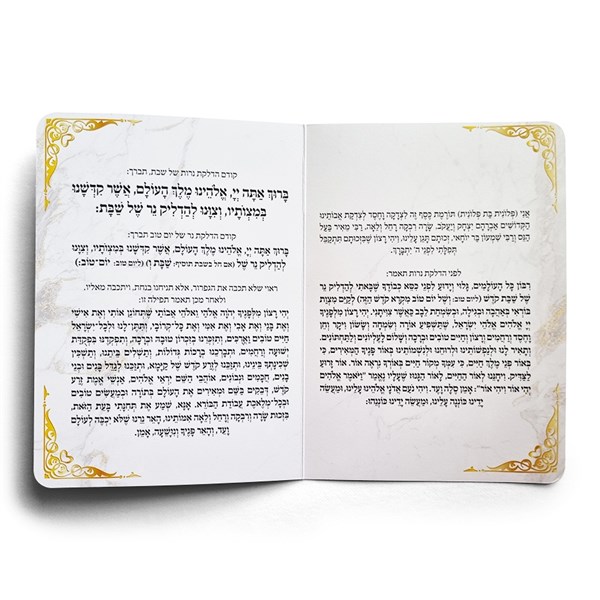 אֲנִי (פְּלוֹנִית בַּת פְּלוֹנִית) תּוֹרֶמֶת כֶּסֶף זֶה לִצְדָקָה וָחֶסֶד לְצִדְקַת אֲבוֹתֵינוּ
הַקְּדוֹשִׁים אַבְרָהָם יִצְחָק וְיַעֲקֹב, שָׂרָה רִבְקָה רָחֵל וְלֵאָה, רַבִּי מֵאִיר בַּעַל
הַנֵּס וְרַבִּי שִׁמְעוֹן בַּר יוֹחַאי, זְכוּתָם תָּגֵן עָלֵינוּ, וִיהִי רָצוֹן שֶׁבִּזְכוּתָם תִּתְקַבֵּל
תְּפִלָּתִי לִפְנֵי ה' יִתְבָּרַךְ.
לפני הדלקת נרות תאמר:
רִבּוֹן כָּל הָעוֹלָמִים, גָּלוּי וְיָדוּעַ לִפְנֵי כִּסֵּא כְבוֹדֶךָ שֶׁבָּאתִי לְהַדְלִיק נֵר
שֶׁל שַׁבַּת קֹדֶשׁ (ליום טוב: וְשֶׁל יוֹם טוֹב מִקְרָא קֹדֶשׁ הַזֶּה) לְקַיֵּם מִצְוַת
בּוֹרְאִי בְּאַהֲבָה וּבְגִילָה, וּבְשִׂמְחַת לֵבָב כַּאֲשֶׁר צִוִּיתַנִי. יְהִי רָצוֹן מִלְּפָנֶיךָ
יְיָ אֱלֹהַים אֱלֹהֵי יִשְׂרָאֵל, שֶׁתַּשְׁפִּיעַ אוֹרָה וְשִׂמְחָה וְשָׂשׂוֹן וִיקָר וְחֵן
וָחֶסֶד וְרַחֲמִים וְרָצוֹן וְחַיִּים טוֹבִים וּבְרָכָה וְשָׁלוֹם לָעֶלְיוֹנִים וְלַתַּחְתּוֹנִים,
וְתָאִיר לָנוּ וּלְנַפְשׁוֹתֵינוּ וּלְרוּחֵנוּ וּלְנִשְׁמוֹתֵינוּ בְּאוֹר פָּנֶיךָ הַמְּאִירִים, כִּי
בְּאוֹר פְּנֵי מֶלֶךְ חַיִּים, כִּי עִמְּךָ מְקוֹר חַיִּים בְּאוֹרְךָ נִרְאֶה אוֹר. אוֹר זָרוּעַ
לַצַּדִּיק. וְיַחֲזִנוּ לְאוֹר הַחַיִּים, לְאוֹר הַגָּנוּז שֶׁעָלָיו נֶאֱמַר "וַיֹּאמֶר אֱלֹהִים
יְהִי אוֹר וַיְהִי אוֹר": אָמֵן סֶלָה וָעֶד. וִיהִי נֹעַם אֲדֹנָי אֱלֹהֵינוּ עָלֵינוּ, וּמַעֲשֵׂה
יָדֵינוּ כּוֹנְנָה עָלֵינוּ, וּמַעֲשֵׂה יָדֵינוּ כּוֹנְנֵהוּ:
קודם הדלקת נרות של שבת, תברך:
בָּרוּךְ אַתָּה יְיָ, אֱלֹהֵינוּ מֶלֶךְ הָעוֹלָם, אֲשֶׁר קִדְּשָׁנוּ
בְּמִצְוֹתָיו, וְצִוָּנוּ לְהַדְלִיק נֵר שֶׁל שַׁבָּת:
קודם הדלקת נר של יום טוב תברך:
בָּרוּךְ אַתָּה יְיָ, אֱלֹהֵינוּ מֶלֶךְ הָעוֹלָם, אֲשֶׁר קִדְּשָׁנוּ בְּמִצְוֹתָיו, וְצִוָּנוּ
לְהַדְלִיק נֵר שֶׁל (אם חל בשבת תוסיף: שַׁבָּת וְ) (ליום טוב: יוֹם-טוֹב:)
ראוי שלא תכבה את הגפרור, אלא תניחנו בנחת, ויתכבה מאליו.
ולאחר מכן תאמר תפילה זו:
יְהִי רָצוֹן מִלְּפָנֶיךָ יְהֹוָה אֱלֹהַי וֵאלֹהֵי אֲבוֹתַי שֶׁתְּחוֹנֵן אוֹתִי וְאֶת אִישִׁי
וְאֶת בָּנַי וְאֶת אָבִי וְאֶת אִמִּי וְאֶת כָּל קְרוֹבַי, וְתִתֶּן לָנוּ וּלְכָל יִשְׂרָאֵל
חַיִּים טוֹבִים וַאֲרֻכִּים, וְתִזְכְּרֵנוּ בְּזִכְרוֹן טוֹבָה וּבְרָכָה, וְתִפְקְדֵנוּ בִּפְקֻדַּת
יְשׁוּעָה וְרַחֲמִים, וּתְבָרְכֵנוּ בְּרָכוֹת גְּדוֹלוֹת, וְתַשְׁלִים בֵּיתֵנוּ, וְתַשְׁכֵּין
שְׁכִינָתְךָ בֵּינֵינוּ, וּתְזַכֵּנוּ לְזֶרַע קֹדֶשׁ שֶׁל קַיָּמָא, וּתְזַכֵּנוּ לְגַדֵּל בָּנִים וּבְנֵי
בָנִים, חֲכָמִים וּנְבוֹנִים, אוֹהֲבֵי הַשֵּׁם יִרְאֵי אֱלֹהִים, אַנְשֵׁי אֱמֶת זֶרַע
קֹדֶשׁ, דְּבֵקִים בַּשֵּׁם וּמְאִירִים אֶת הָעוֹלָם בְּתוֹרָה וּבְמַעֲשִׂים טוֹבִים
וּבְכָל מְלֶאכֶת עֲבוֹדַת הַבּוֹרֵא. אָנָּא, שְׁמַע אֶת תְּחִנָּתִי בָּעֵת הַזֹּאת,
בִּזְכוּת שָׂרָה וְרִבְקָה וְרָחֵל וְלֵאָה אִמּוֹתֵינוּ, הָאֵר נֵרֵנוּ שֶׁלֹּא יִכְבֶּה לְעוֹלָם
וָעֶד, וְהָאֵר פָּנֶיךָ וְנִוָּשֵׁעָה, אָמֵן.